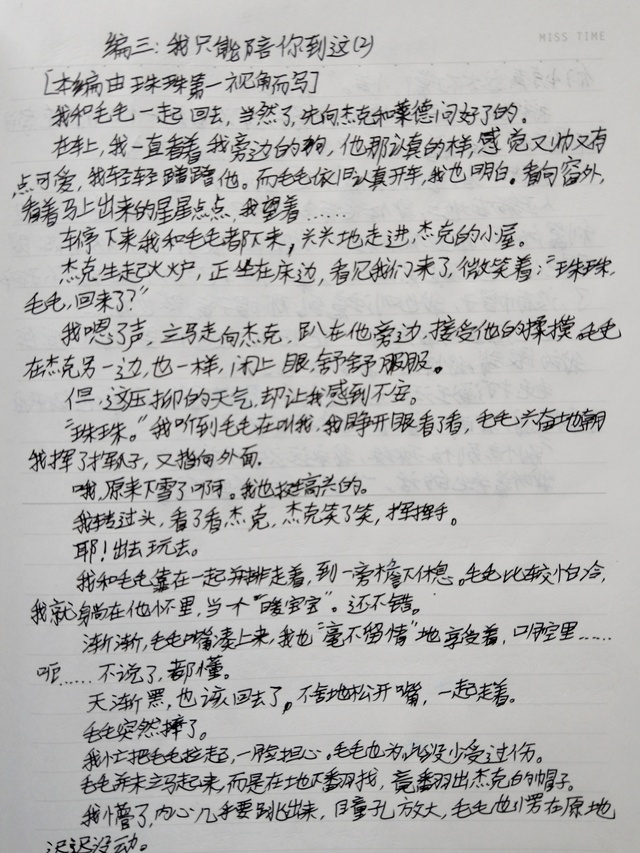 MISS TIME
编三:我只能陪你到这(2)
[本编由珠珠第一视角而写]
我和毛毛一起回去,当然了,先向杰克和莱德问好了的。
在车上,我一直看着我旁边的狗,他那认真的样,感觉又帅又有
点可爱,我轻轻蹭蹭他。而毛毛依旧认真开车,我也明白。看向窗外,
看着马上出来的星星点点,我望着……
车停下来我和毛毛都下来,兴兴地走进杰克的小屋。
杰克生起火炉,正坐在床边,看见我们来了,微笑着:“珠珠,
毛毛,回来了?”
我嗯了声,立马走向杰克,趴在他旁边,接受他的揉摸。毛毛
在杰克另一边,也一样,闭上眼,舒舒服服。
但,这压抑的天气,却让我感到不安。
“珠珠。”我听到毛毛在叫我,我睁开眼看了看,毛毛兴奋地朝
我挥了挥爪子,又指向外面.
哦,原来下雪了啊。我也挺高兴的。
我转过头,看了看杰克,杰克笑了笑,挥挥手。
耶!出去玩去。
我和毛毛靠在一起并排走着,到一旁檐下休息。毛毛比较怕冷,
我就躺在他怀里,当个“暖宝宝”。还不错。
渐渐,毛毛嘴凑上来,我也“毫不留情”地享受着,口腔里……
呃……不说了,都懂。
天渐黑,也该回去了,不舍地松开嘴,一起走着。
毛毛突然摔了。
我忙把毛毛拉起,一脸担心。毛毛也为此没少受过伤。
毛毛并未立马起来,而是在地下翻找,竟翻出杰克的帽子。
我懵了,内心几乎要跳出来,目瞳孔放大,毛毛也愣在原地
迟迟没动。